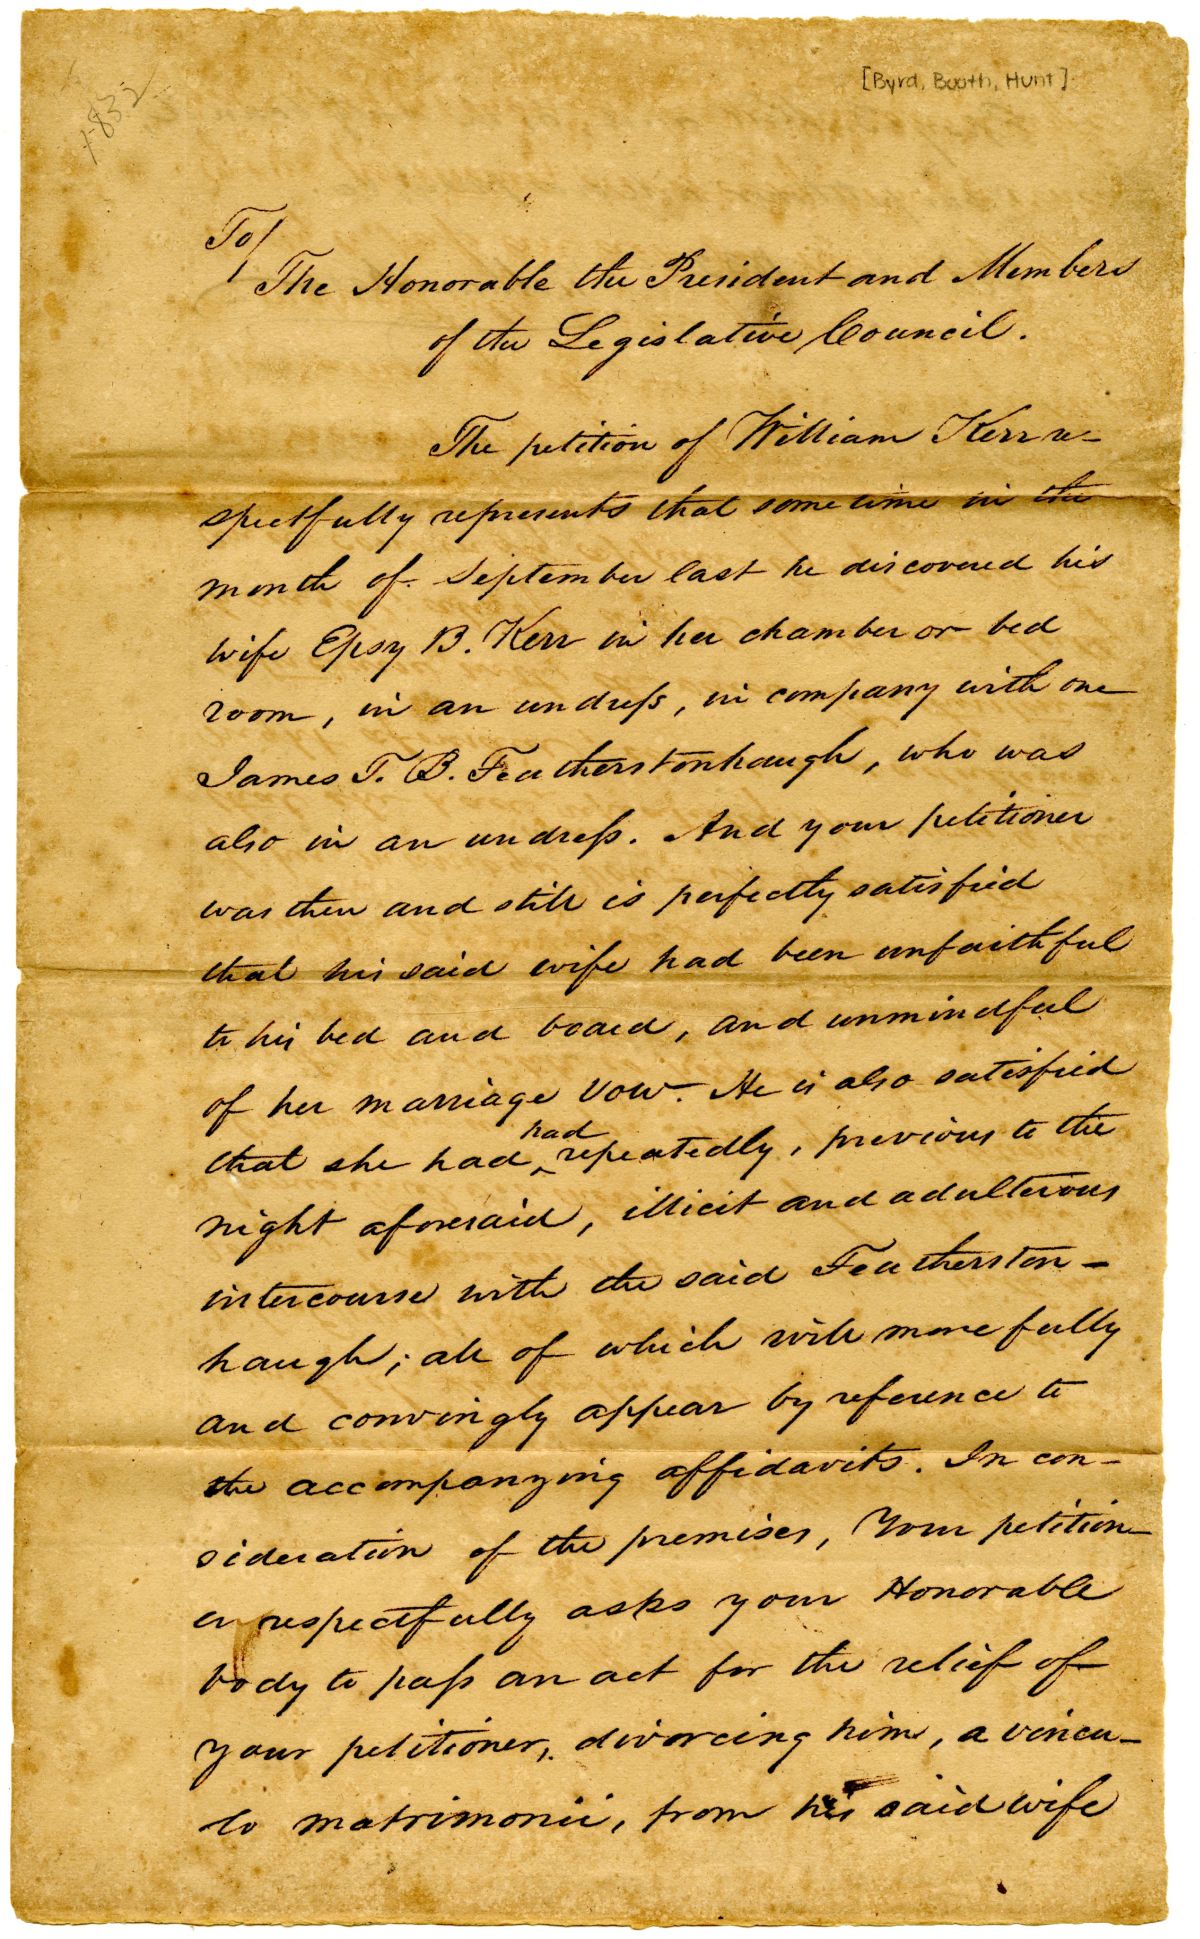 1832
[Byrd, Booth, Hunt]
To/
The Honorable the President and Members
of the Legislative Council.
The petition of William Kerr re-
spectfully represents that some time in the
month of September last he discovered his
wife Epsy B. Kerr in her chamber or bed
room, in an undress, in company with one
James T. B. Featherstonhaugh, who was
also in an undress. And your petitioner
was then and still is perfectly satisfied
that his said wife had been unfaithful
to his bed and board, and unmindful
of her marriage vow. He is also satisfied
had
that she had ‸ repeatedly, previous to the
night aforesaid, illicit and adulterous
intercourse with the said Featherston-
haugh; all of which will more fully
and convingly appear by reference to
the accompanying affidavits. In con-
sideration of the premises, Your petition-
er respectfully asks your Honorable
body to pass an act for the relief of
your petitioner, divorcing him, a vincu-
lo matrimonii, from his said wife